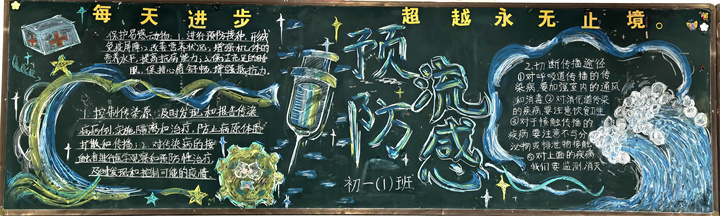 每天进步
超越永无止境。
保护易感动物：1.进行预防接种，形成
免疫屏障；2.改善营养状况，增强机体的
营养水平，提高抗病能力；3.保证充足的睡
眠，保持心情舒畅，增强抵抗力。
1.控制传染源：及时发现和报告传染
病病例，实施隔离和治疗，防止病原体的
扩散和传播；2.对传染病的接
触者进行医学观察和预防性治疗，
及时发现和控制可能的疫情
预防
流感
初一(1)班
2.切断传播途径
①对呼吸道传播的传
染病，要加强室内的通风
和消毒②对消化道传染
的疾病，要注意饮食卫生
③对于接触传播的
疾病，要注意不与分
泌物或排泄物接触
④对上面的疾病
我们要监测，消灭